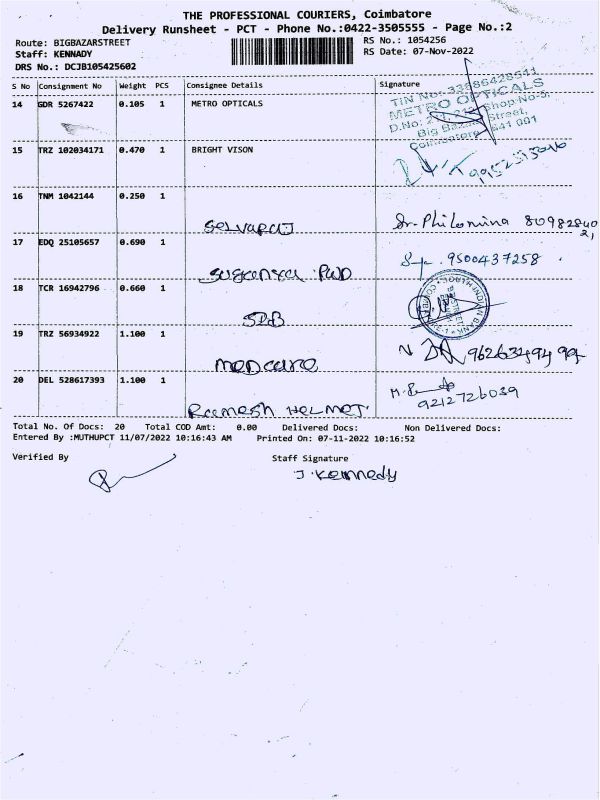 THE PROFESSIONAL COURIERS, Coimbatore
Delivery Runsheet - PCT - Phone No.:0422-3505555 - Page No.:2
Route: BIGBAZARSTREET
Staff: KENNADY
DRS No.: DCJB105425602
RS No.: 1054256
RS Date: 07-Nov-2022
S No Consignment No Weight PCS Consignee Details Signature
14 GDR 5267422 0.105 1 METRO OPTICALS
TIN No: 33586428541
METRO OPTICALS
Shop No-5,
Big Bazaar Street,
Coimbatore 641 001
15 TRZ 102034171 0.470 1 BRIGHT VISON
16 TNM 1042144 0.250 1
Selvaraj Sr. Philomina 80982840
17 EDQ 25105657 0.690 1
Suganya PWD 9500437258
18 TCR 16942796 0.660 1
SIB
SOUTH INDIAN BANK
19 TRZ 56934922 1.100 1
medcare
20 DEL 528617393 1.100 1
Ramesh Helmet. 9212726039
Total No. Of Docs: 20 Total COD Amt: 0.00 Delivered Docs: Non Delivered Docs:
Entered By :MUTHUPCT 11/07/2022 10:16:43 AM Printed On: 07-11-2022 10:16:52
Verified By Staff Signature
J. Kennedy